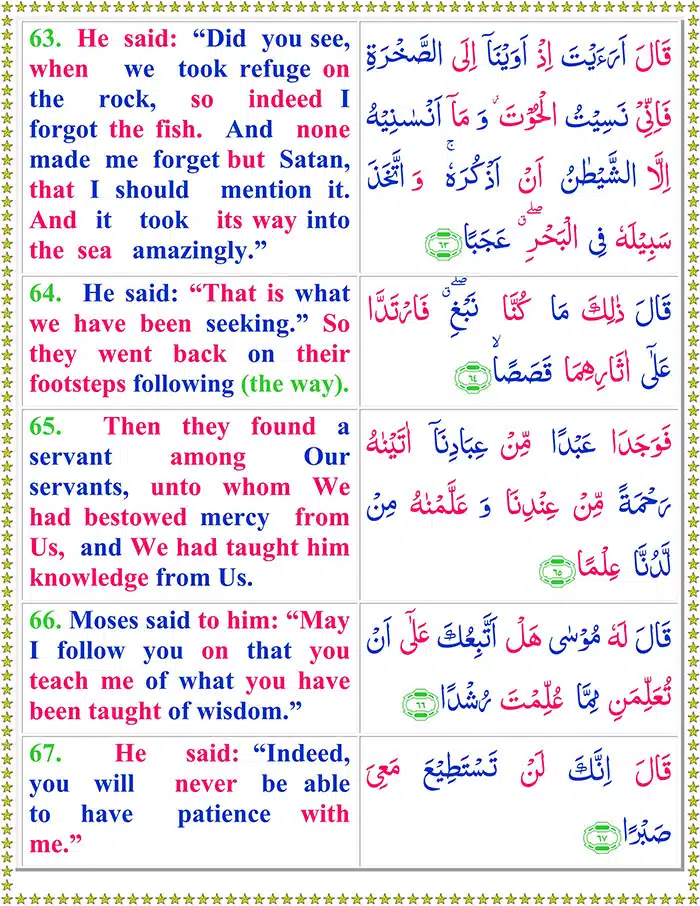 63. He said: “Did you see,
when we took refuge on
the rock, so indeed I
forgot the fish. And none
made me forget but Satan,
that I should mention it.
And it took its way into
the sea amazingly.”
قَالَ اَرَءَيْتَ اِذْ اَوَيْنَاۤ اِلَى الصَّخْرَةِ
فَاِنِّىْ نَسِيْتُ الْحُوْتَ ؗ وَ مَاۤ اَنْسٰىنِيْهُ
اِلَّا الشَّيْطٰنُ اَنْ اَذْكُرَهٗ ۚ وَ اتَّخَذَ
سَبِيْلَهٗ فِى الْبَحْرِ ۖۗ عَجَبًا ﴿٦٣﴾
64. He said: “That is what
we have been seeking.” So
they went back on their
footsteps following (the way).
قَالَ ذٰلِكَ مَا كُنَّا نَبْغِ ۖۗ فَارْتَدَّا
عَلٰۤى اٰثَارِهِمَا قَصَصًا ۙ ﴿٦٤﴾
65. Then they found a
servant among Our
servants, unto whom We
had bestowed mercy from
Us, and We had taught him
knowledge from Us.
فَوَجَدَا عَبْدًا مِّنْ عِبَادِنَاۤ اٰتَيْنٰهُ
رَحْمَةً مِّنْ عِنْدِنَا وَ عَلَّمْنٰهُ مِنْ
لَّدُنَّا عِلْمًا ﴿٦٥﴾
66. Moses said to him: “May
I follow you on that you
teach me of what you have
been taught of wisdom.”
قَالَ لَهٗ مُوْسٰى هَلْ اَتَّبِعُكَ عَلٰۤى اَنْ
تُعَلِّمَنِ مِمَّا عُلِّمْتَ رُشْدًا ﴿٦٦﴾
67. He said: “Indeed,
you will never be able
to have patience with
me.”
قَالَ اِنَّكَ لَنْ تَسْتَطِيْعَ مَعِىَ
صَبْرًا ﴿٦٧﴾